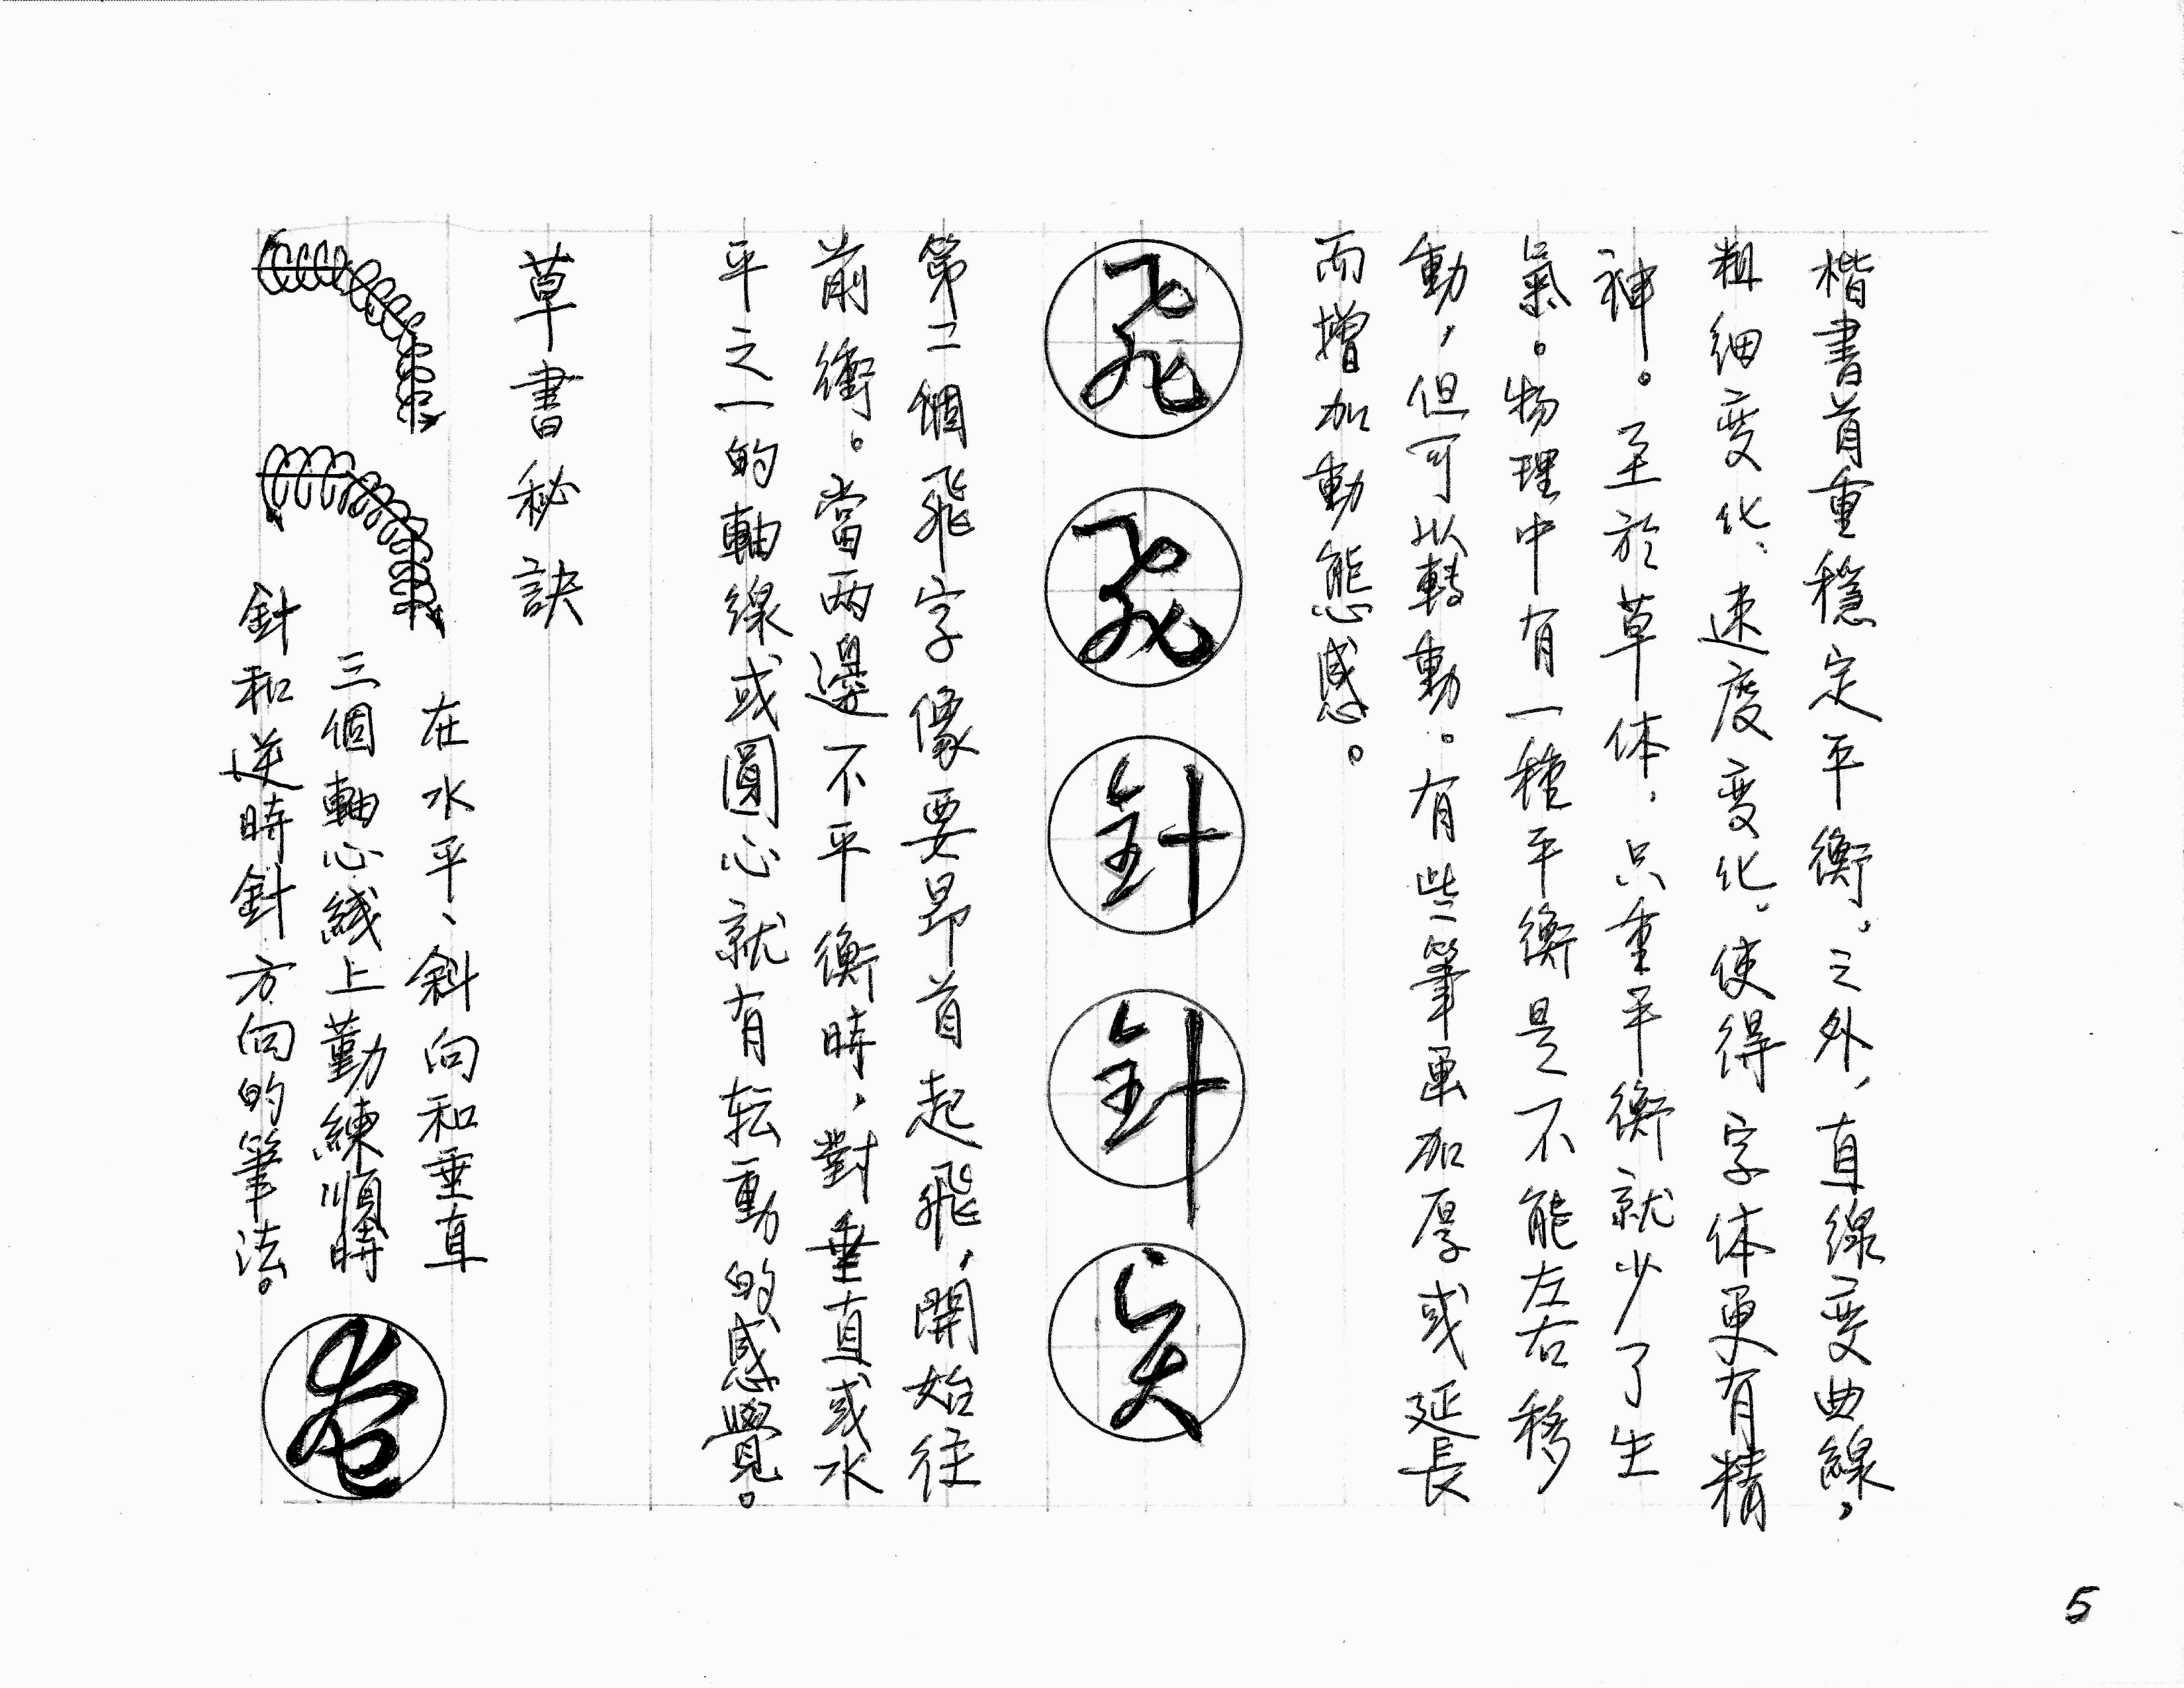 楷書首重穩定平衡。之外，直線变曲線，
粗細变化、速度变化。使得字体更有精
神。至於草体，只重平衡就少了生
氣。物理中有一種平衡是不能左右移
動，但可以轉動。有些筆画加厚或延長
而增加動態感。
飛 飛 針 針
第二個飛字像要昂首起飛，開始往
前衝。當兩邊不平衡時，對垂直或水
平之一的軸線或圓心就有転動的感覺。
草書秘訣
在水平、斜向和垂直
三個軸心綫上勤練順時
針和逆時針方向的筆法。
5